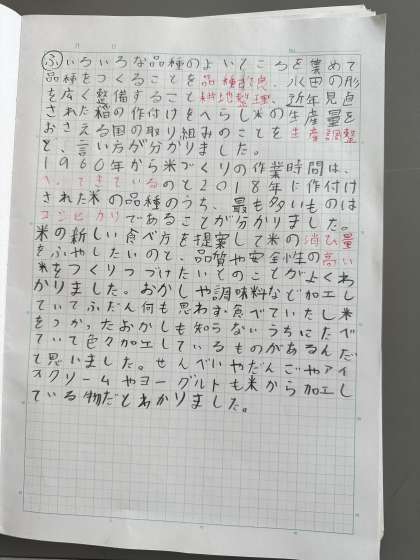 ふいろいろな品種のよいところを集めて
品種をつくることを品種改良、水田の形
を広く整備すること耕地整理、近年見直
された稲の作付けをへらし米の生産量を
おさえる国の取り組みのことを生産調整
と、言い方が分かりました。
1960年から米づくりの作業時間は、
へってきているのと2018年に作付け
された米の品種のうち、最も多いものは
コシヒカリであることが分かりました。
米の新しい食べ方を提案して米の消ひ量
をふやしたいのと、品質や安全性の高い
米をつくりつづけたいとのことがよくわ
かりました。おかしや調味料など加工し
ていてふだん何も思わず食べていたし米
をつかったおかしも知らないうちにたべ
ていて色々加工しているものがあるんだ
て思いました。せんべいやだんごやアイ
スクリームやヨーグルトも米から加工し
ている物だとわかりました。